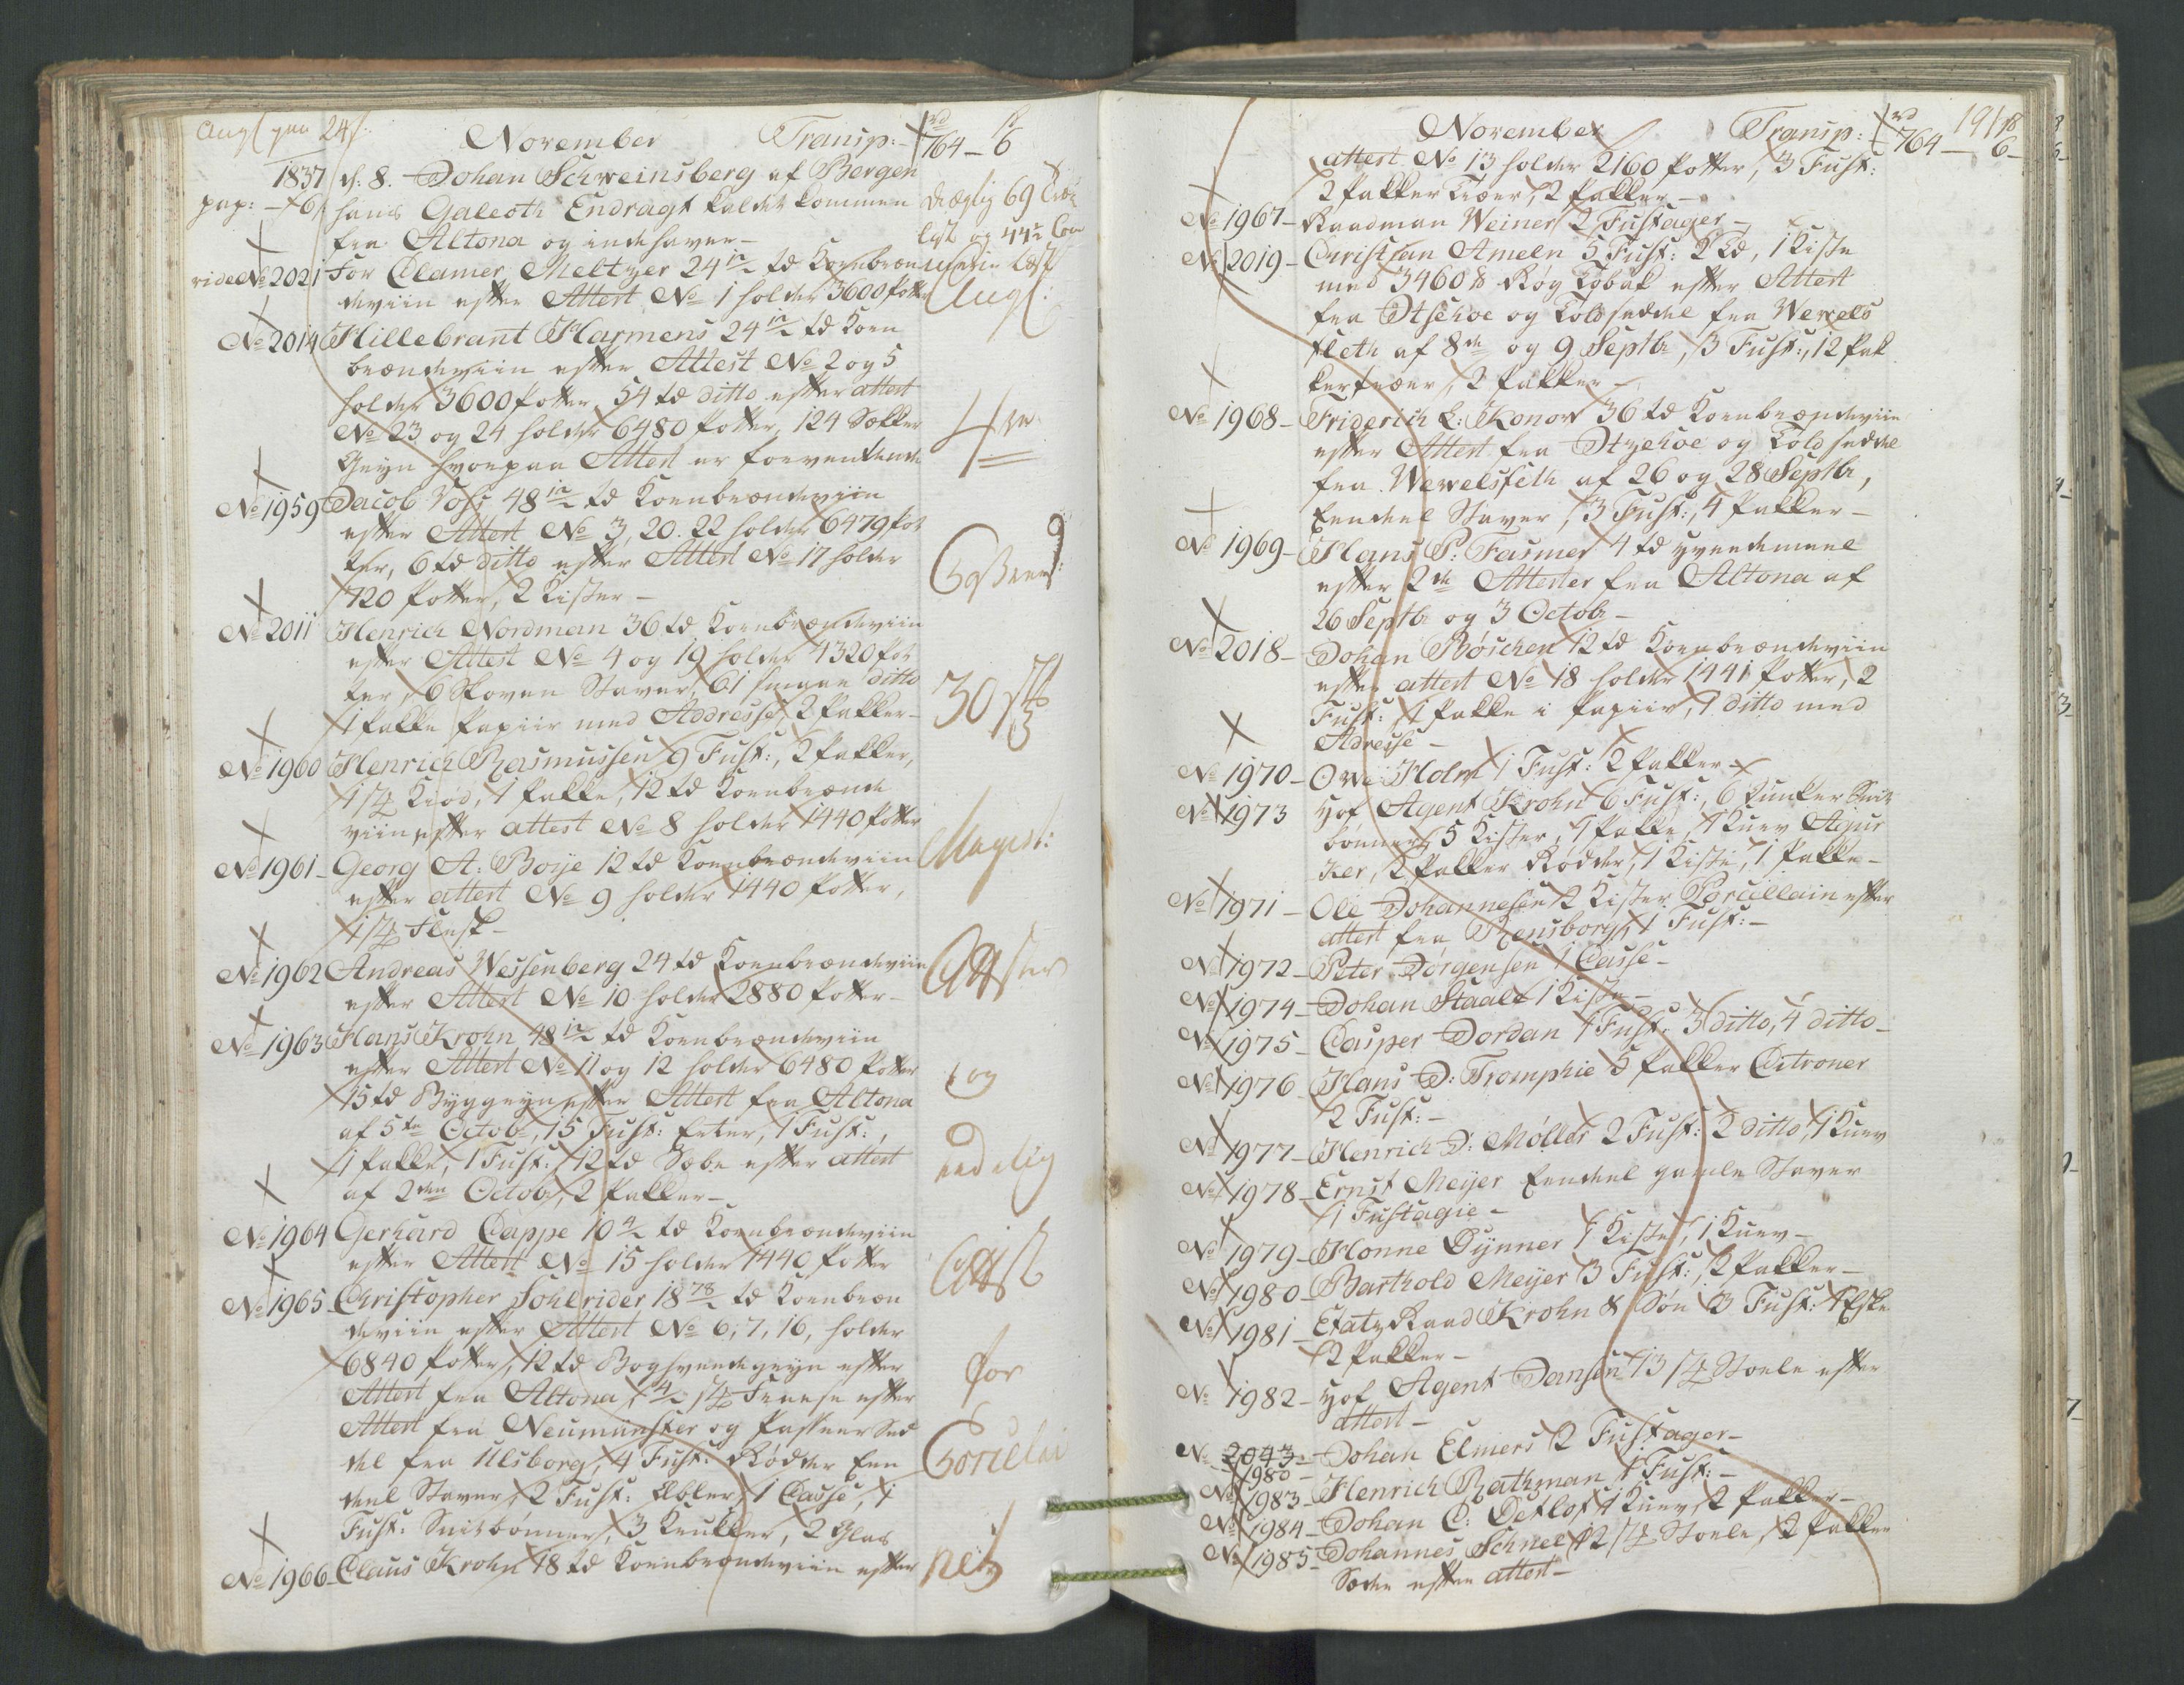 Aug pua 24
November Transp: rd 764 – 6
1837 d. 8. Johan Schweinsberg af Bergen
pap: – 6 hans Galeoth Endragt kaldet kommen
fra Altona og indehaver –
dræglig 69
Læst og 44½ Com
mercie Læst
vide No 2021 For Clamer Meltzer 24 td Kornbræn
deviin efter Attest No 1 holder 3600 Potter
No 2014 Hillebrant Harmens 24 td Korn
brændeviin efter Attest No 2 og 5
holder 3600 Potter, 54 td ditto efter attest
No 23 og 24 holder 6480 Potter, 124 Sækker
Gryn hvorpaa Attest er forventende
No 1959 Jacob Vohs 48 td Kornbrændeviin
efter Attest No 3, 20. 22 holder 6479 Pot
ter, 6 td ditto efter Attest No 17 holder
720 Potter, 2 Kister –
No 2011 Henrich Nordman 36 td Kornbrændeviin
efter Attest No 4 og 19 holder 4320 Pot
ter, 6 Skoven Staver, 61 smaae ditto
1 Pakke Papiir med Addresse, 2 Pakker –
No 1960 Henrich Rasmussen 9 Fust:, 2 Pakker,
1 Kiød, 1 Pakke, 12 td Kornbrænde
viin efter attest No 8 holder 1440 Potter
No 1961 – Georg A: Boije 12 td Kornbrændeviin
efter attest No 9 holder 1440 Potter,
1 Flesk –
No 1962 Andreas Wessenberg 24 td Kornbrændeviin
efter Attest No 10 holder 2880 Potter –
No 1963 Hans Krohn 48 td Kornbrændeviin
efter Attest No 11 og 12 holder 6480 Potter
15 td Byggryn efter Attest fra Altona
af 5te Octob:, 15 Fust: Erter, 1 Fust:,
1 Pakke, 1 Fust:, 12 td Sæbe efter attest
af 2den Octob:, 2 Pakker –
No 1964 Gerhard Cappe 10 td Kornbrændeviin
efter Attest No 15 holder 1440 Potter
No 1965 – Christopher Sohlrider 18 td Kornbræn
deviin efter Attest No 6, 7, 16, holder
6840 Potter, 12 td Boghvedegryn efter
Attest fra Altona, efter
Attest fra Neumünster og Passeer Sed
del fra Ulsborg, 4 Fust: Rødder Een
deel Staver, 2 Fust: Æbler, 1 Casse, 1
Fust: Snitbønner, 3 Krukker, 2 Glas
No 1966 – Claus Krohn 18 td Kornbrændeviin efter
4
30
Magist:
Attster
og
endelig
Attst
for
November Transp: rd 764 – 6 –
191
attest No 13 holder 2160 Potter, 3 Fust:
2 Pakker, 2 Pakker –
No 1967 – Raadman Weiner 2 Fustager –
No 2019 – Christian Ameln 5 Fust:, 1 Kiste
med 3460 lb Røg Tobak efter Attest
fra Itzehoe og Toldseddel fra Wewels
fleth af 8de og 9 Septbr, 3 Fust:, 12 Pak
ker, 2 Pakker –
No 1968 – Friderich L: Konow 36 td Kornbrændeviin
efter Attest fra Itzehoe og Toldseddel
fra Wewelsfleth af 26 og 28 Septbr,
Eendeel Staver, 3 Fust:, 4 Pakker –
No 1969 – Hans P: Fasmer 4 td hvedemeel
efter 2de Attester fra Altona af
26 Septbr og 3 Octob –
No 2018 – Johan Böschen 12 td Kornbrændeviin
efter attest No 18 holder 1441 Potter, 2
Fust:, 1 Pakke i Papiir, 1 ditto med
Adresse –
No 1970 – Owe Holm 1 Fust: 2 Pakker –
No 1973 Hof Agent Krohn 6 Fust:, 6 Dunker Snit
bønner, 5 Kister, 1 Pakke, 1 Kurv Agur
ker, 2 Pakker Rødder, 1 Kiste, 1 Pakke –
No 1971 – Ole Johannesen 2 Kister Porcellain efter
attest fra Rensborg, 1 Fust: –
No 1972 – Peter Jörgensen 1 Casse –
No 1974 – Johan Staalt 1 Kiste –
No 1975 – Casper Jordan 1 Fust: 3 ditto, 4 ditto –
No 1976 Hans D: Tromphie 5 Pakker Citroner
2 Fust: –
No 1977 – Henrich D: Møller 2 Fust: 2 ditto, 1 Kurv
No 1978 – Ernst Meijer Eendeel gamle Staver
1 Fustagie –
No 1979 – Honne Dynner 1 Kiste, 1 Kurv –
No 1980 – Barthold Meijer 3 Fust:, 2 Pakker –
No 1981 – Etatz Raad Krohn & Søn 3 Fust: 1 Eske
2 Pakker –
No 1982 – Hof Agent Jansen 13 Stoele efter
attest –
No 2043 – Johan Elmers 2 Fustager –
1980 –
No 1983 – Henrich Rathman 1 Fust: –
No 1984 – Johan C: Detlof 1 Kurv, 2 Pakker –
No 1985 – Johannes Schnel 12 Stoele, 2 Pakker
Sæder efter attest –